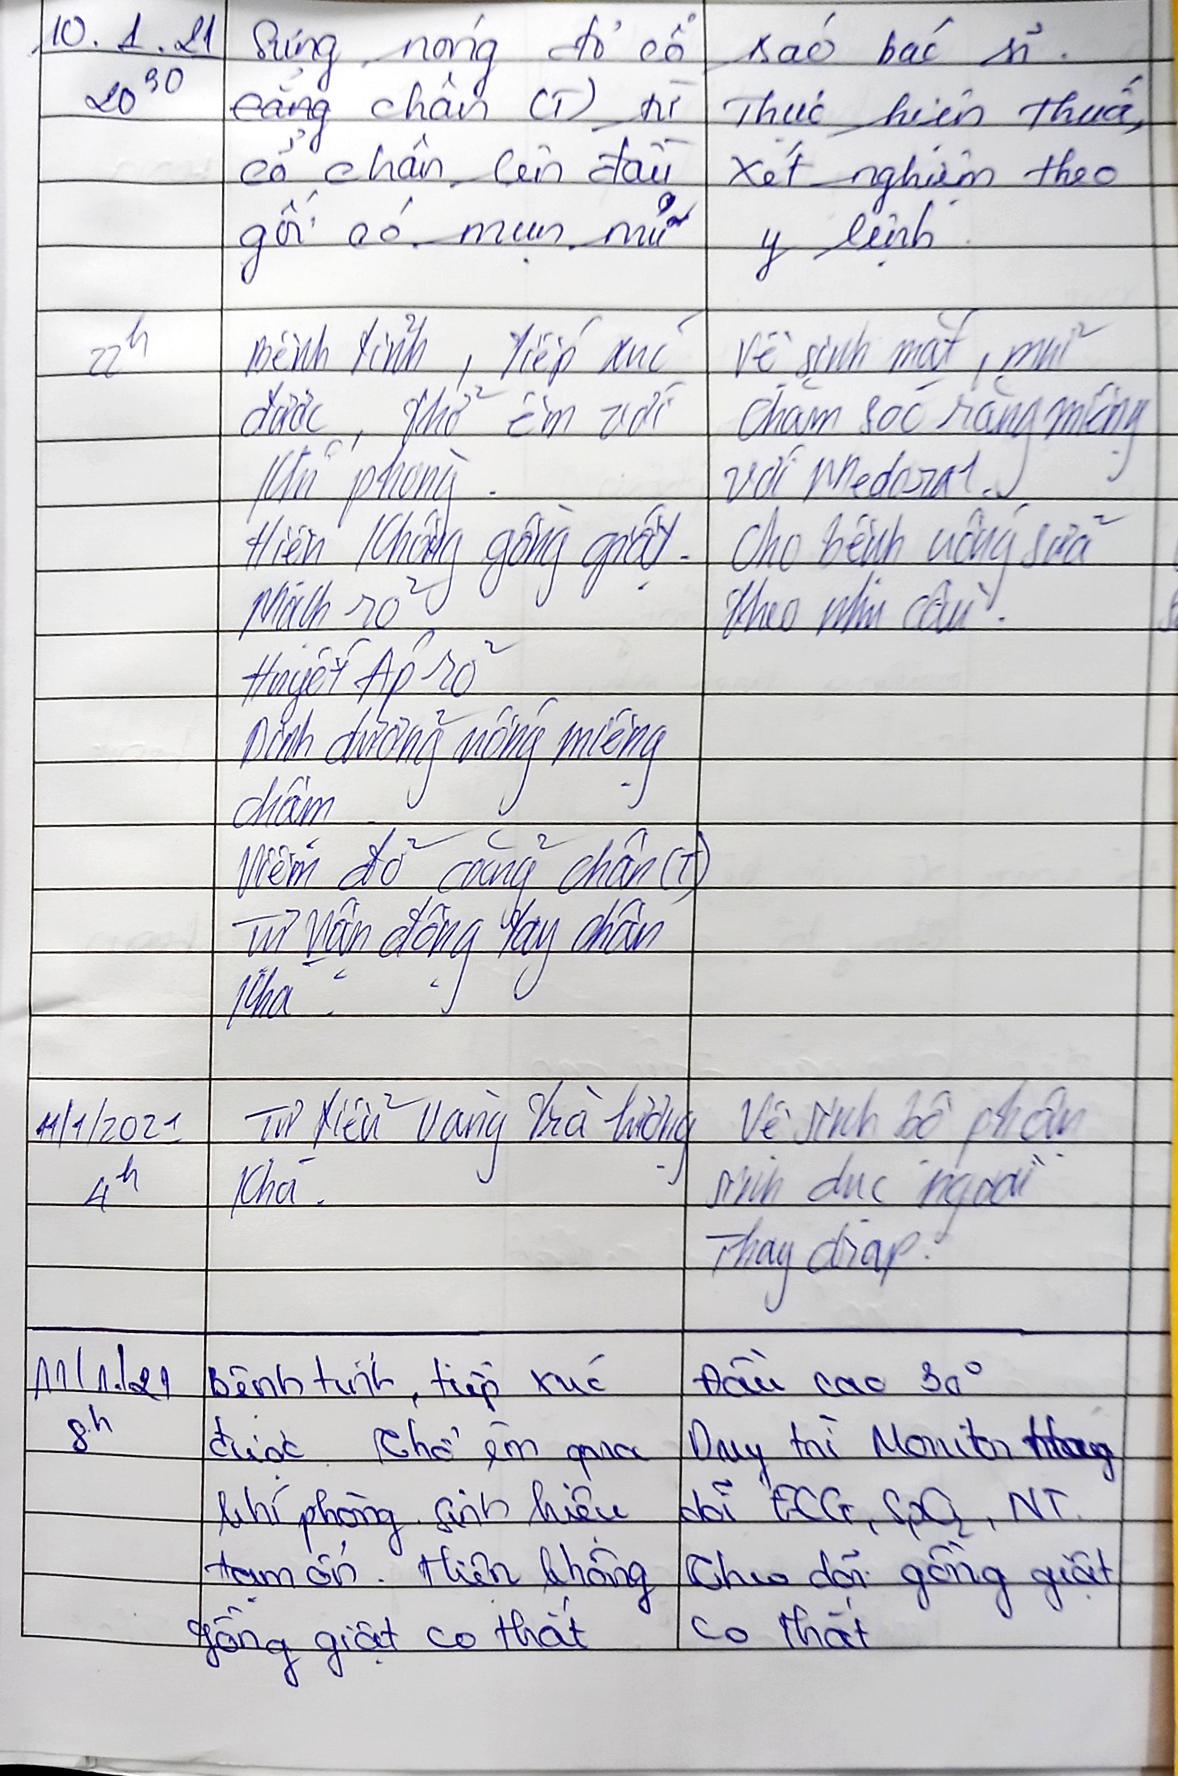 10.1.21
20 30
Sưng nóng đỏ cổ
cẳng chân (T) từ
cổ chân lên đầu
gối có mụn mủ
Báo bác sĩ.
Thực hiện thuốc,
xét nghiệm theo
y lệnh.
22h
Bệnh tỉnh, tiếp xúc
được, thở êm với
khí phòng.
Hiện không gồng giật.
Mạch rõ
Huyết Áp rõ
Dinh dưỡng uống miệng
chậm
Viêm đỏ cẳng chân (T)
Tự vận động tay chân
khá.
Vệ sinh mắt, mũi
Chăm sóc răng miệng
với Medoral.
Cho bệnh uống sữa
theo nhu cầu.
11/1/2021
4h
Tự tiểu vàng trà lượng
khá.
Vệ sinh bộ phận
sinh dục ngoài
Thay diap.
11/1/21
8h
Bệnh tỉnh, tiếp xúc
được. Thở êm qua
khí phòng. sinh hiệu
tạm ổn. Hiện không
gồng giật co thắt
Đầu cao 30°
Duy trì Monitor theo
dõi ECG, SpO2, NT.
Theo dõi gồng giật
co thắt